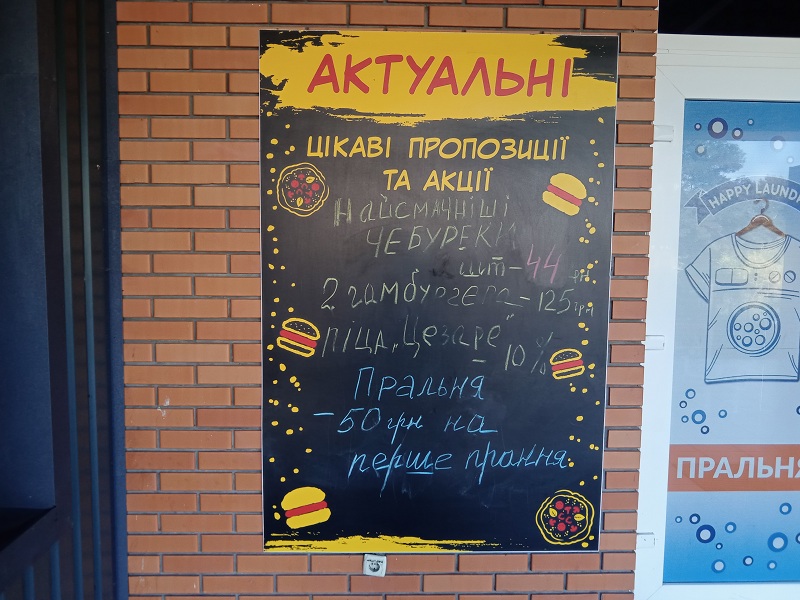 АКТУАЛЬНІ
ЦІКАВІ ПРОПОЗИЦІЇ
ТА АКЦІЇ
Найсмачніші
ЧЕБУРЕКИ
шт - 44 грн
2 гамбургера - 125 грн
піца „Цезаре"
- 10%
Пральня
- 50 грн на
перше прання
HAPPY LAUND
ПРАЛЬНЯ